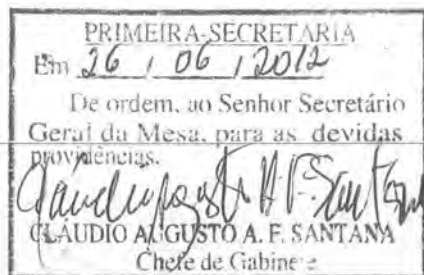 PRIMEIRA-SECRETARIA
Em 26 / 06 / 2012
De ordem, ao Senhor Secretário
Geral da Mesa, para as devidas
providências.
CLÁUDIO AUGUSTO A. F. SANTANA
Chefe de Gabinete